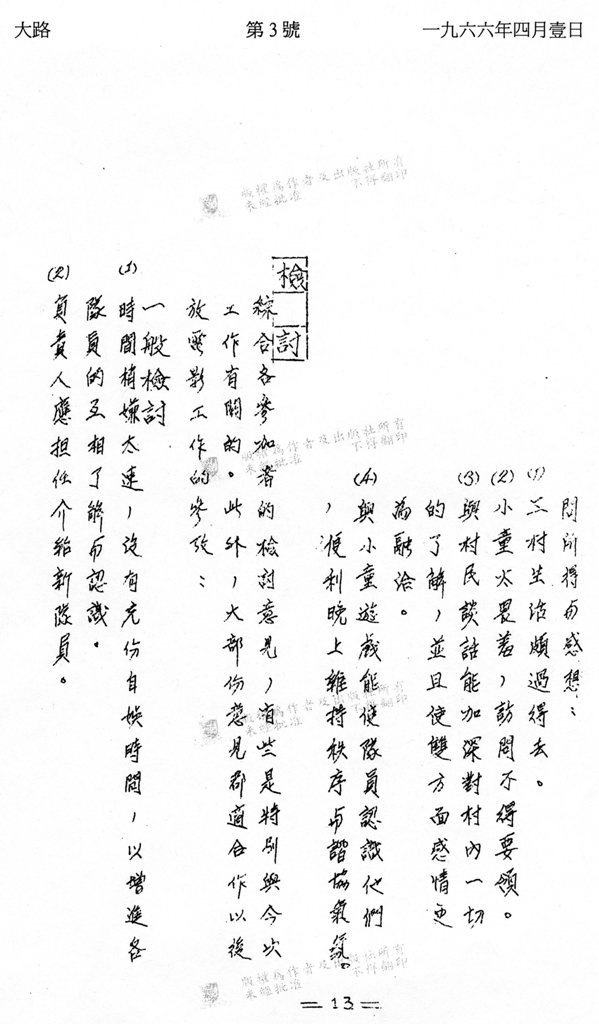 大路
第3號
一九六六年四月壹日
問所得与感想：
(1) 三村生活頗過得去。
(2) 小童太畏羞，訪問不得要領。
(3) 與村民談話能加深對村內一切
的了解，並且使雙方面感情更
為融洽。
(4) 與小童遊戲能使隊員認識他們
，便利晚上維持秩序与諧協氣氛。
檢討
綜合各參加者的檢討意見，有些是特別與今次
工作有關的。此外，大部份意見都適合作以後
放電影工作的參攷：
一般檢討
(1) 時間稍嫌太速，沒有充份自娛時間，以增進各
隊員的互相了解与認識。
(2) 負責人應担任介紹新隊員。
=13=
版權為作者及出版社所有
未經批准 不得翻印
版權為作者及出版社所有
未經批准 不得翻印
版權為作者及出版社所有
未經批准 不得翻印
版權為作者及出版社所有
未經批准 不得翻印